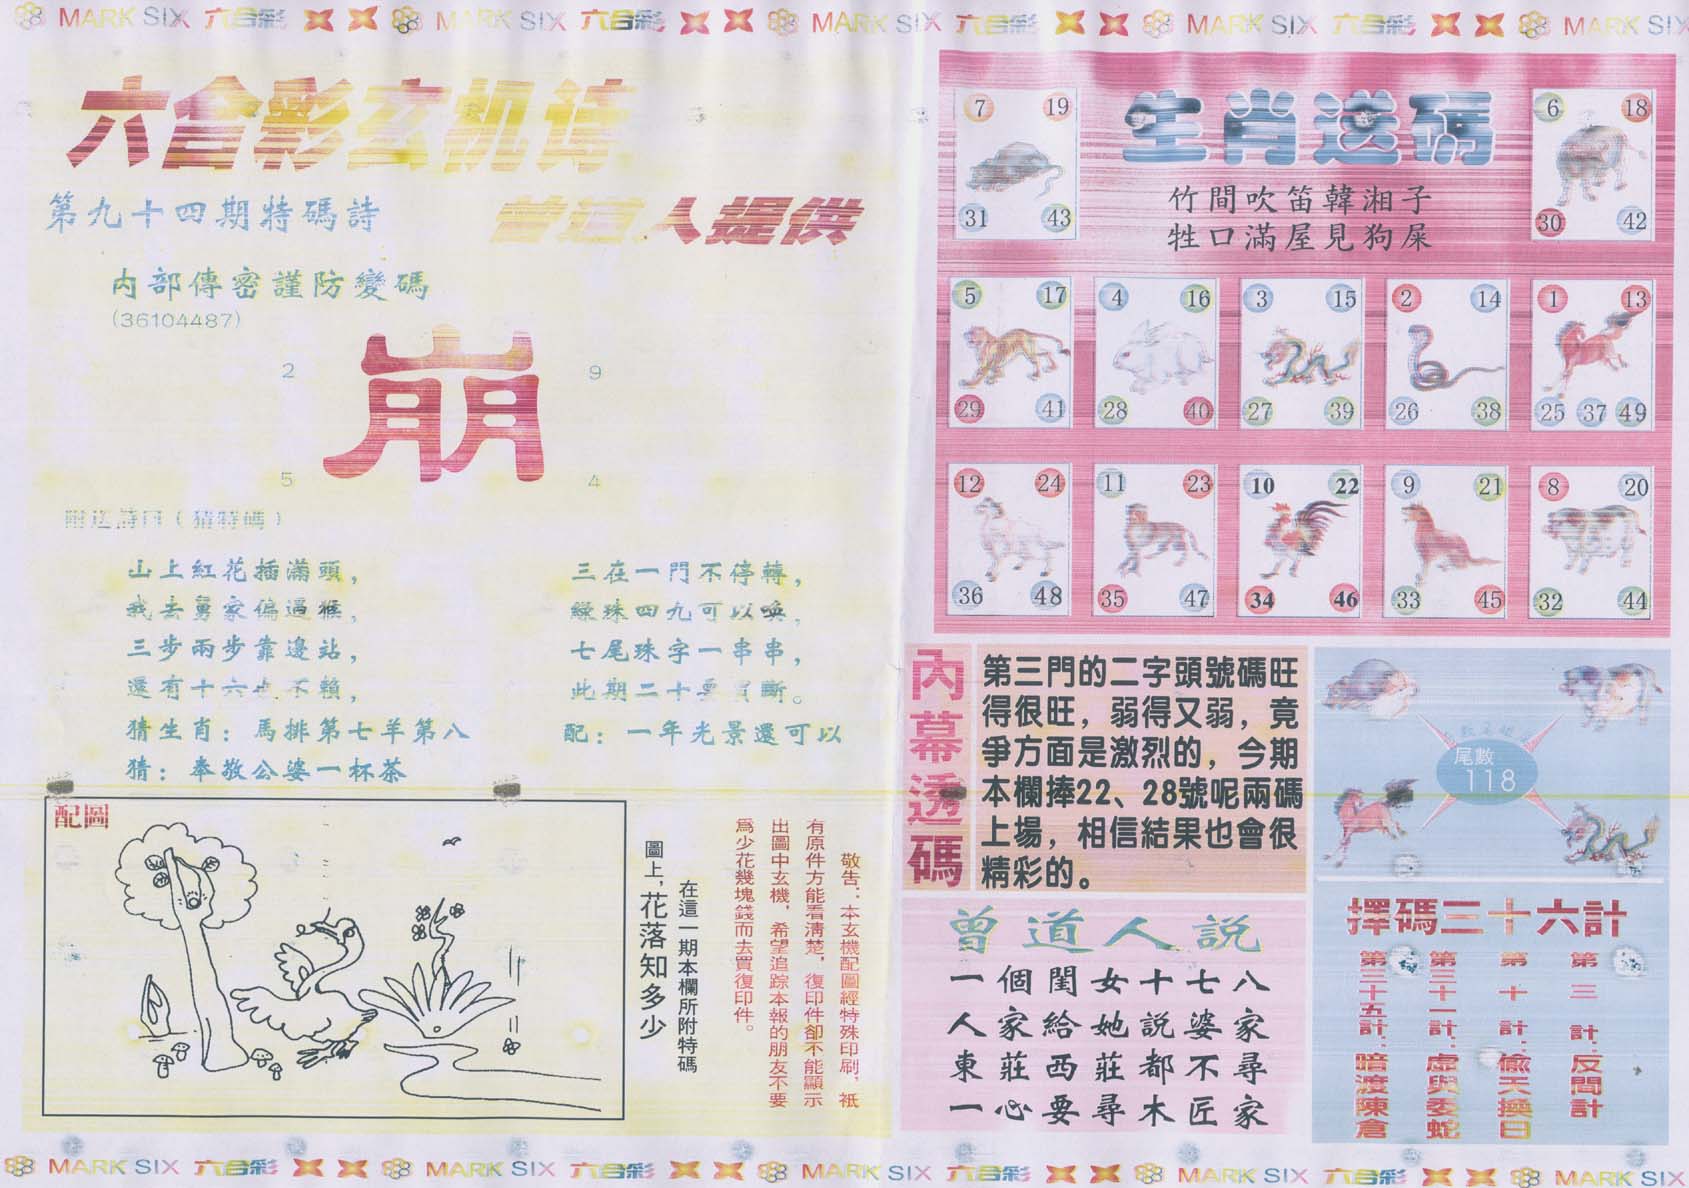 MARK SIX 六合彩 MARK SIX 六合彩 MARK SIX 六合彩 MARK SIX 六合彩 MARK SIX
六合彩玄机诗
第九十四期特碼詩
曾道人提供
内部傳密謹防變碼
(36104487)
2 9
崩
5 4
附送詩曰（猜特碼）
山上紅花插滿頭，
我去舅家偏過猴，
三步兩步靠邊站，
還有十六也不賴，
猜生肖：馬排第七羊第八
猜：奉敬公婆一杯茶
三在一門不停轉，
綠珠四九可以喚，
七尾珠字一串串，
此期二十要買斷。
配：一年光景還可以
配圖
圖上，花落知多少
在這一期本欄所附特碼
敬告：本玄機配圖經特殊印刷，衹
有原件方能看清楚，復印件卻不能顯示
出圖中玄機，希望追踪本報的朋友不要
爲少花幾塊錢而去買復印件。
生肖送碼
竹間吹笛韓湘子
牲口滿屋見狗屎
7 19
31 43
6 18
30 42
5 17 4 16 3 15 2 14 1 13
29 41 28 40 27 39 26 38 25 37 49
12 24 11 23 10 22 9 21 8 20
36 48 35 47 34 46 33 45 32 44
內幕透碼
第三門的二字頭號碼旺
得很旺，弱得又弱，竟
爭方面是激烈的，今期
本欄捧22、28號呢兩碼
上場，相信結果也會很
精彩的。
尾數
118
曾道人説
一個閨女十七八
人家給她説婆家
東莊西莊都不尋
一心要尋木匠家
擇碼三十六計
第三計：反間計
第十計：偷天換日
第三十一計：虛與委蛇
第三十五計：暗渡陳倉
MARK SIX 六合彩 MARK SIX 六合彩 MARK SIX 六合彩 MARK SIX 六合彩 MARK SIX